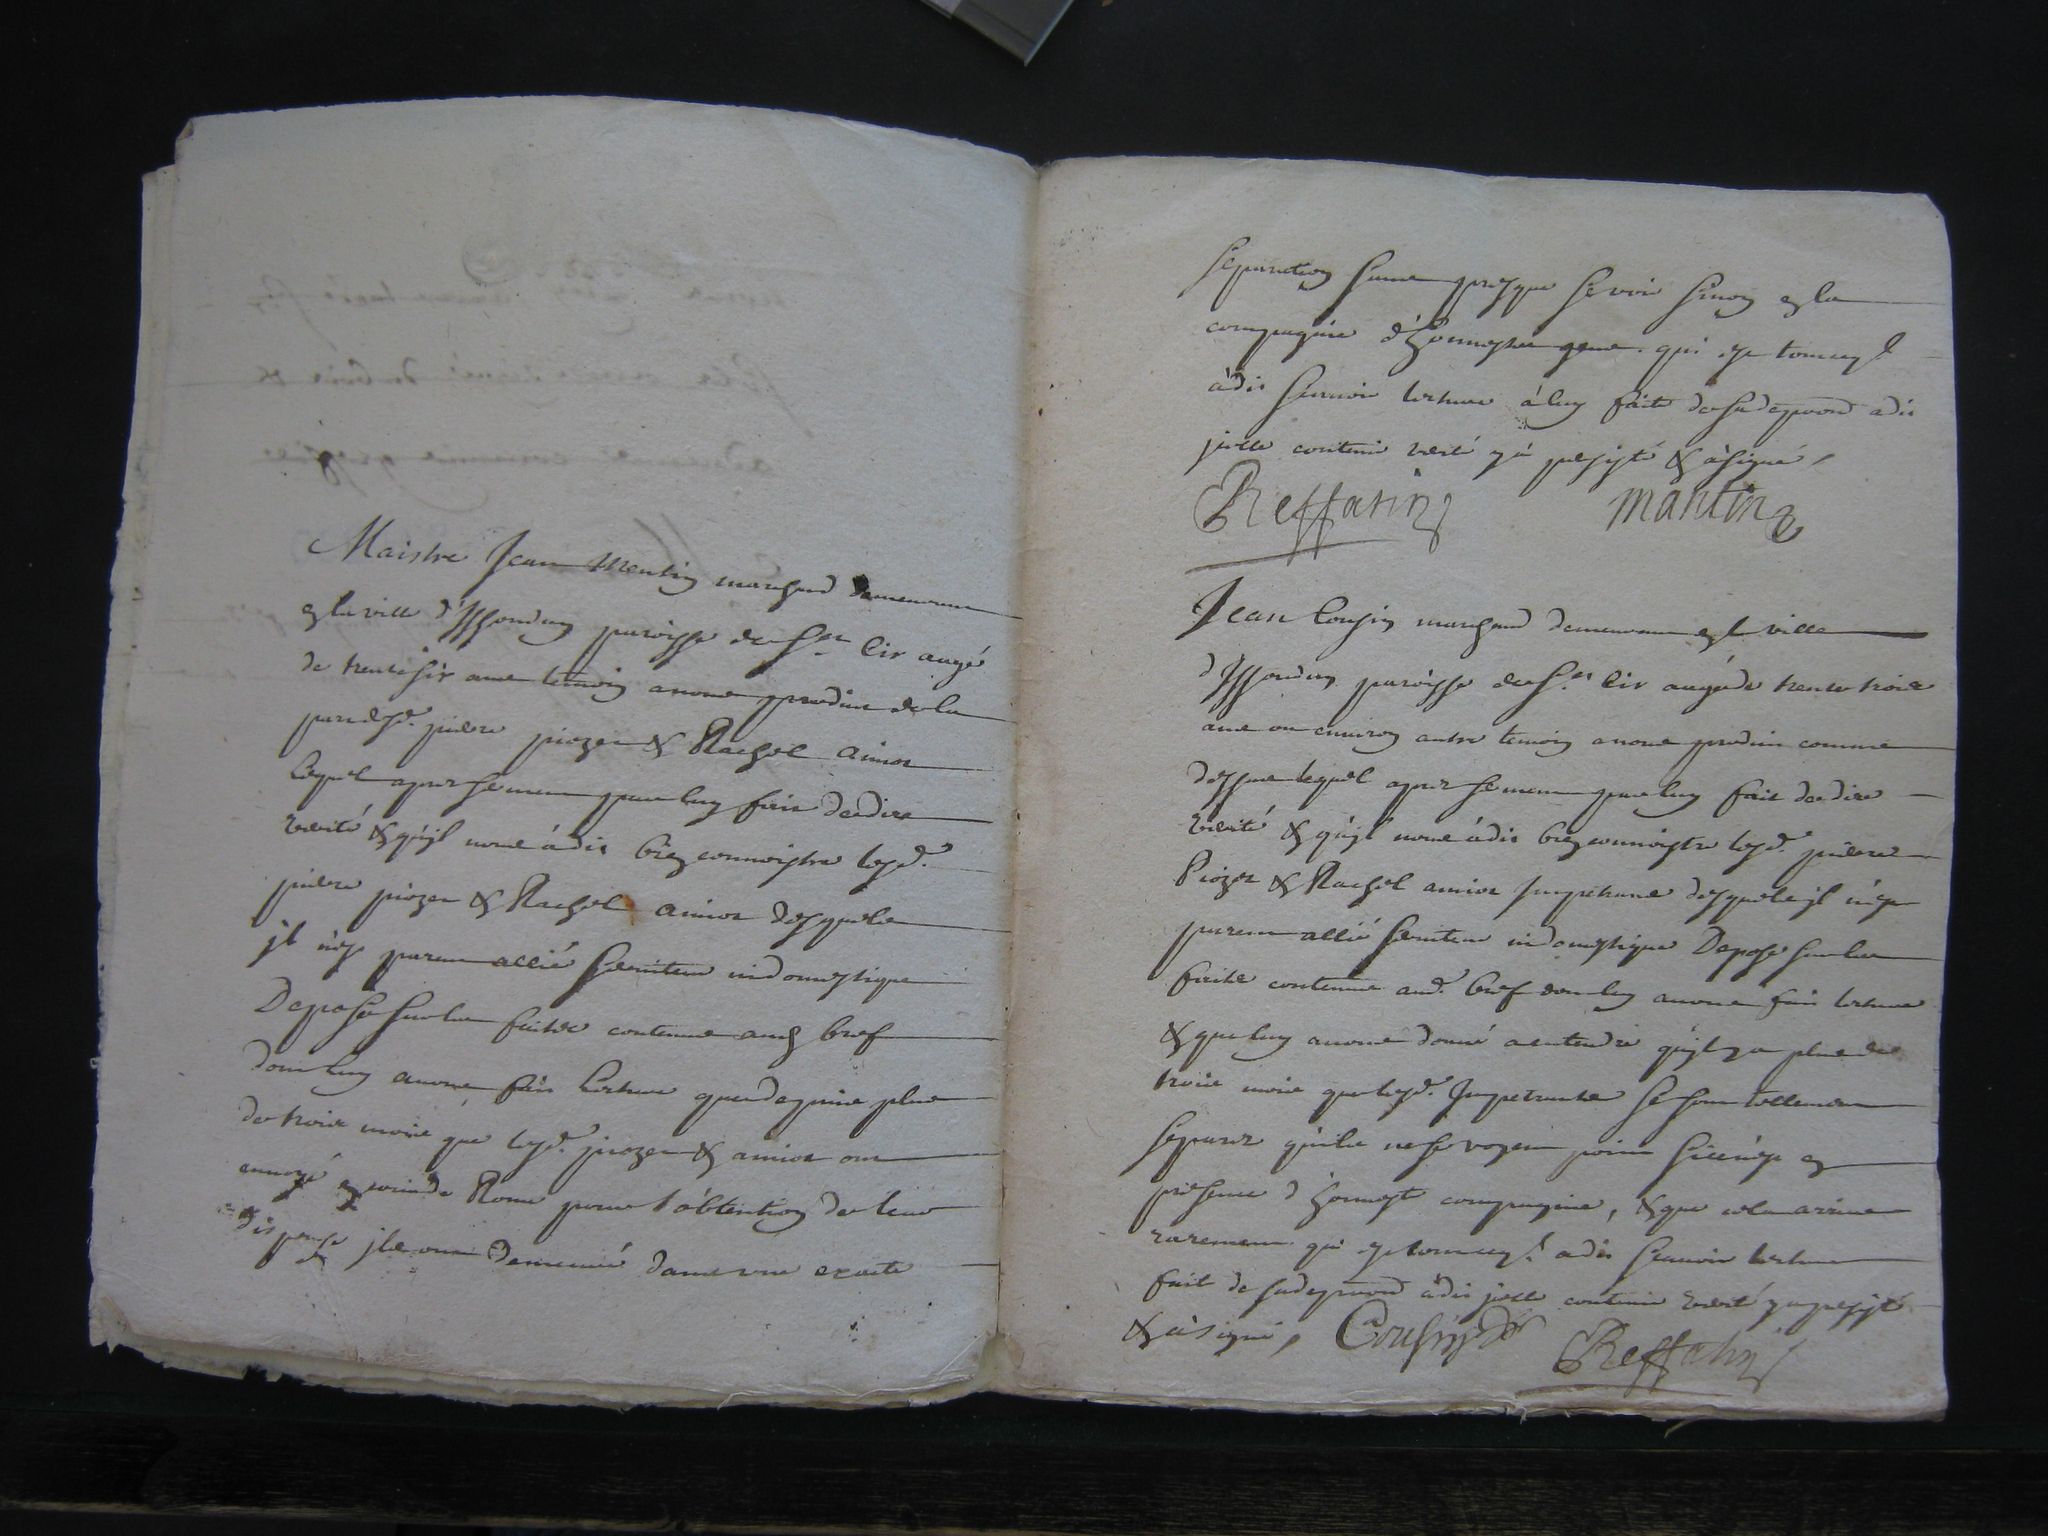 Maistre Jean Mentin marchand demeurant
en la ville d'Issoudun paroisse de St Cir aagé
de trente six ans temoin a nous produit de la
part desd. pierre piozet & Rachel amiot
Lequel apres serment par luy fait de dire
verité & qu'jl nous à dit bien connoistre lesd.
pierre piozet & Rachel amiot desquels
jl n'est parent allié serviteur ni domestique
Depose sur les faites contenus aud bref
dont luy auons fait lecture que depuis plus
de trois mois que lesd. piozet & amiot ont
enuoyé en cour de Rome pour l'obtention de leur
dispense jls ont demeuré dans une exacte
separation sans presque se voir sinon en la
compagnie d'honnestes gens qui est tout ce qu'jl
à dit sçauoir lecture à luy faite de sa deposon a dit
jcelle contenir verité y à persisté & à signé,
Reffatin Mantin
Jean Cousin marchand demeurant en la ville
d'Issoudun paroisse de St Cir aagé de trente trois
ans ou enuiron autre temoin a nous produit comme
dessus lequel apres serment par luy fait de dire
verité & qu'jl nous à dit bien connoistre lesd. pierre
Piozet & Rachel amiot Impetrans desquels jl n'est
parent allié serviteur ni domestique Depose sur les
faits contenus aud. bref dont luy auons fait lecture
& que luy auons donné a entendre qu'jl y a plus de
trois mois que lesd. Impetrants se sont tellement
separez qu'ils ne se voyent point si ce n'est en
presence d'honneste compagnie, & que cela arrive
rarement qui est tout ce qu'jl a dit sçauoir lecture
fait de sa deposon à dit jcelle contenir verité y a persisté
& à signé, Cousin Reffatin